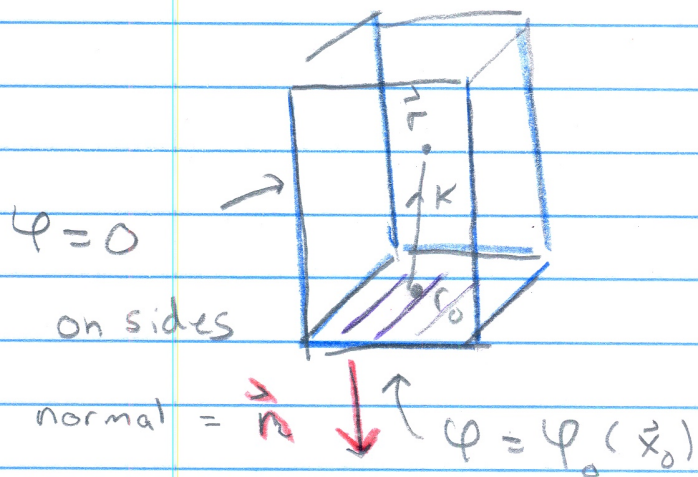 r⃗
K
φ=0
r₀
on sides
normal = n⃗
φ = φ₀(x⃗₀)